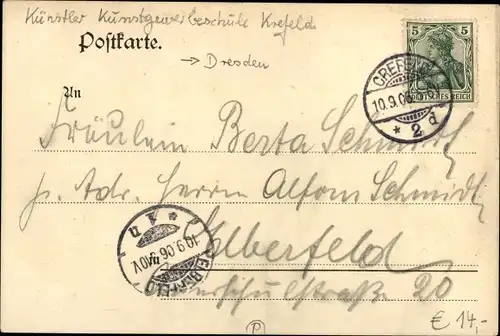 Künstler Kunstgewerbeschule Krefeld
Postkarte.
→ Dresden
5 5
DEUTSCHES REICH
CREFELD
10.9.06
* 2 d
An
Fräulein Berta Schmidt
p. Adr. Herrn Alfons Schmidt
Elberfeld
ELBERFELD
10.9.06
20
(P)
€ 14,-